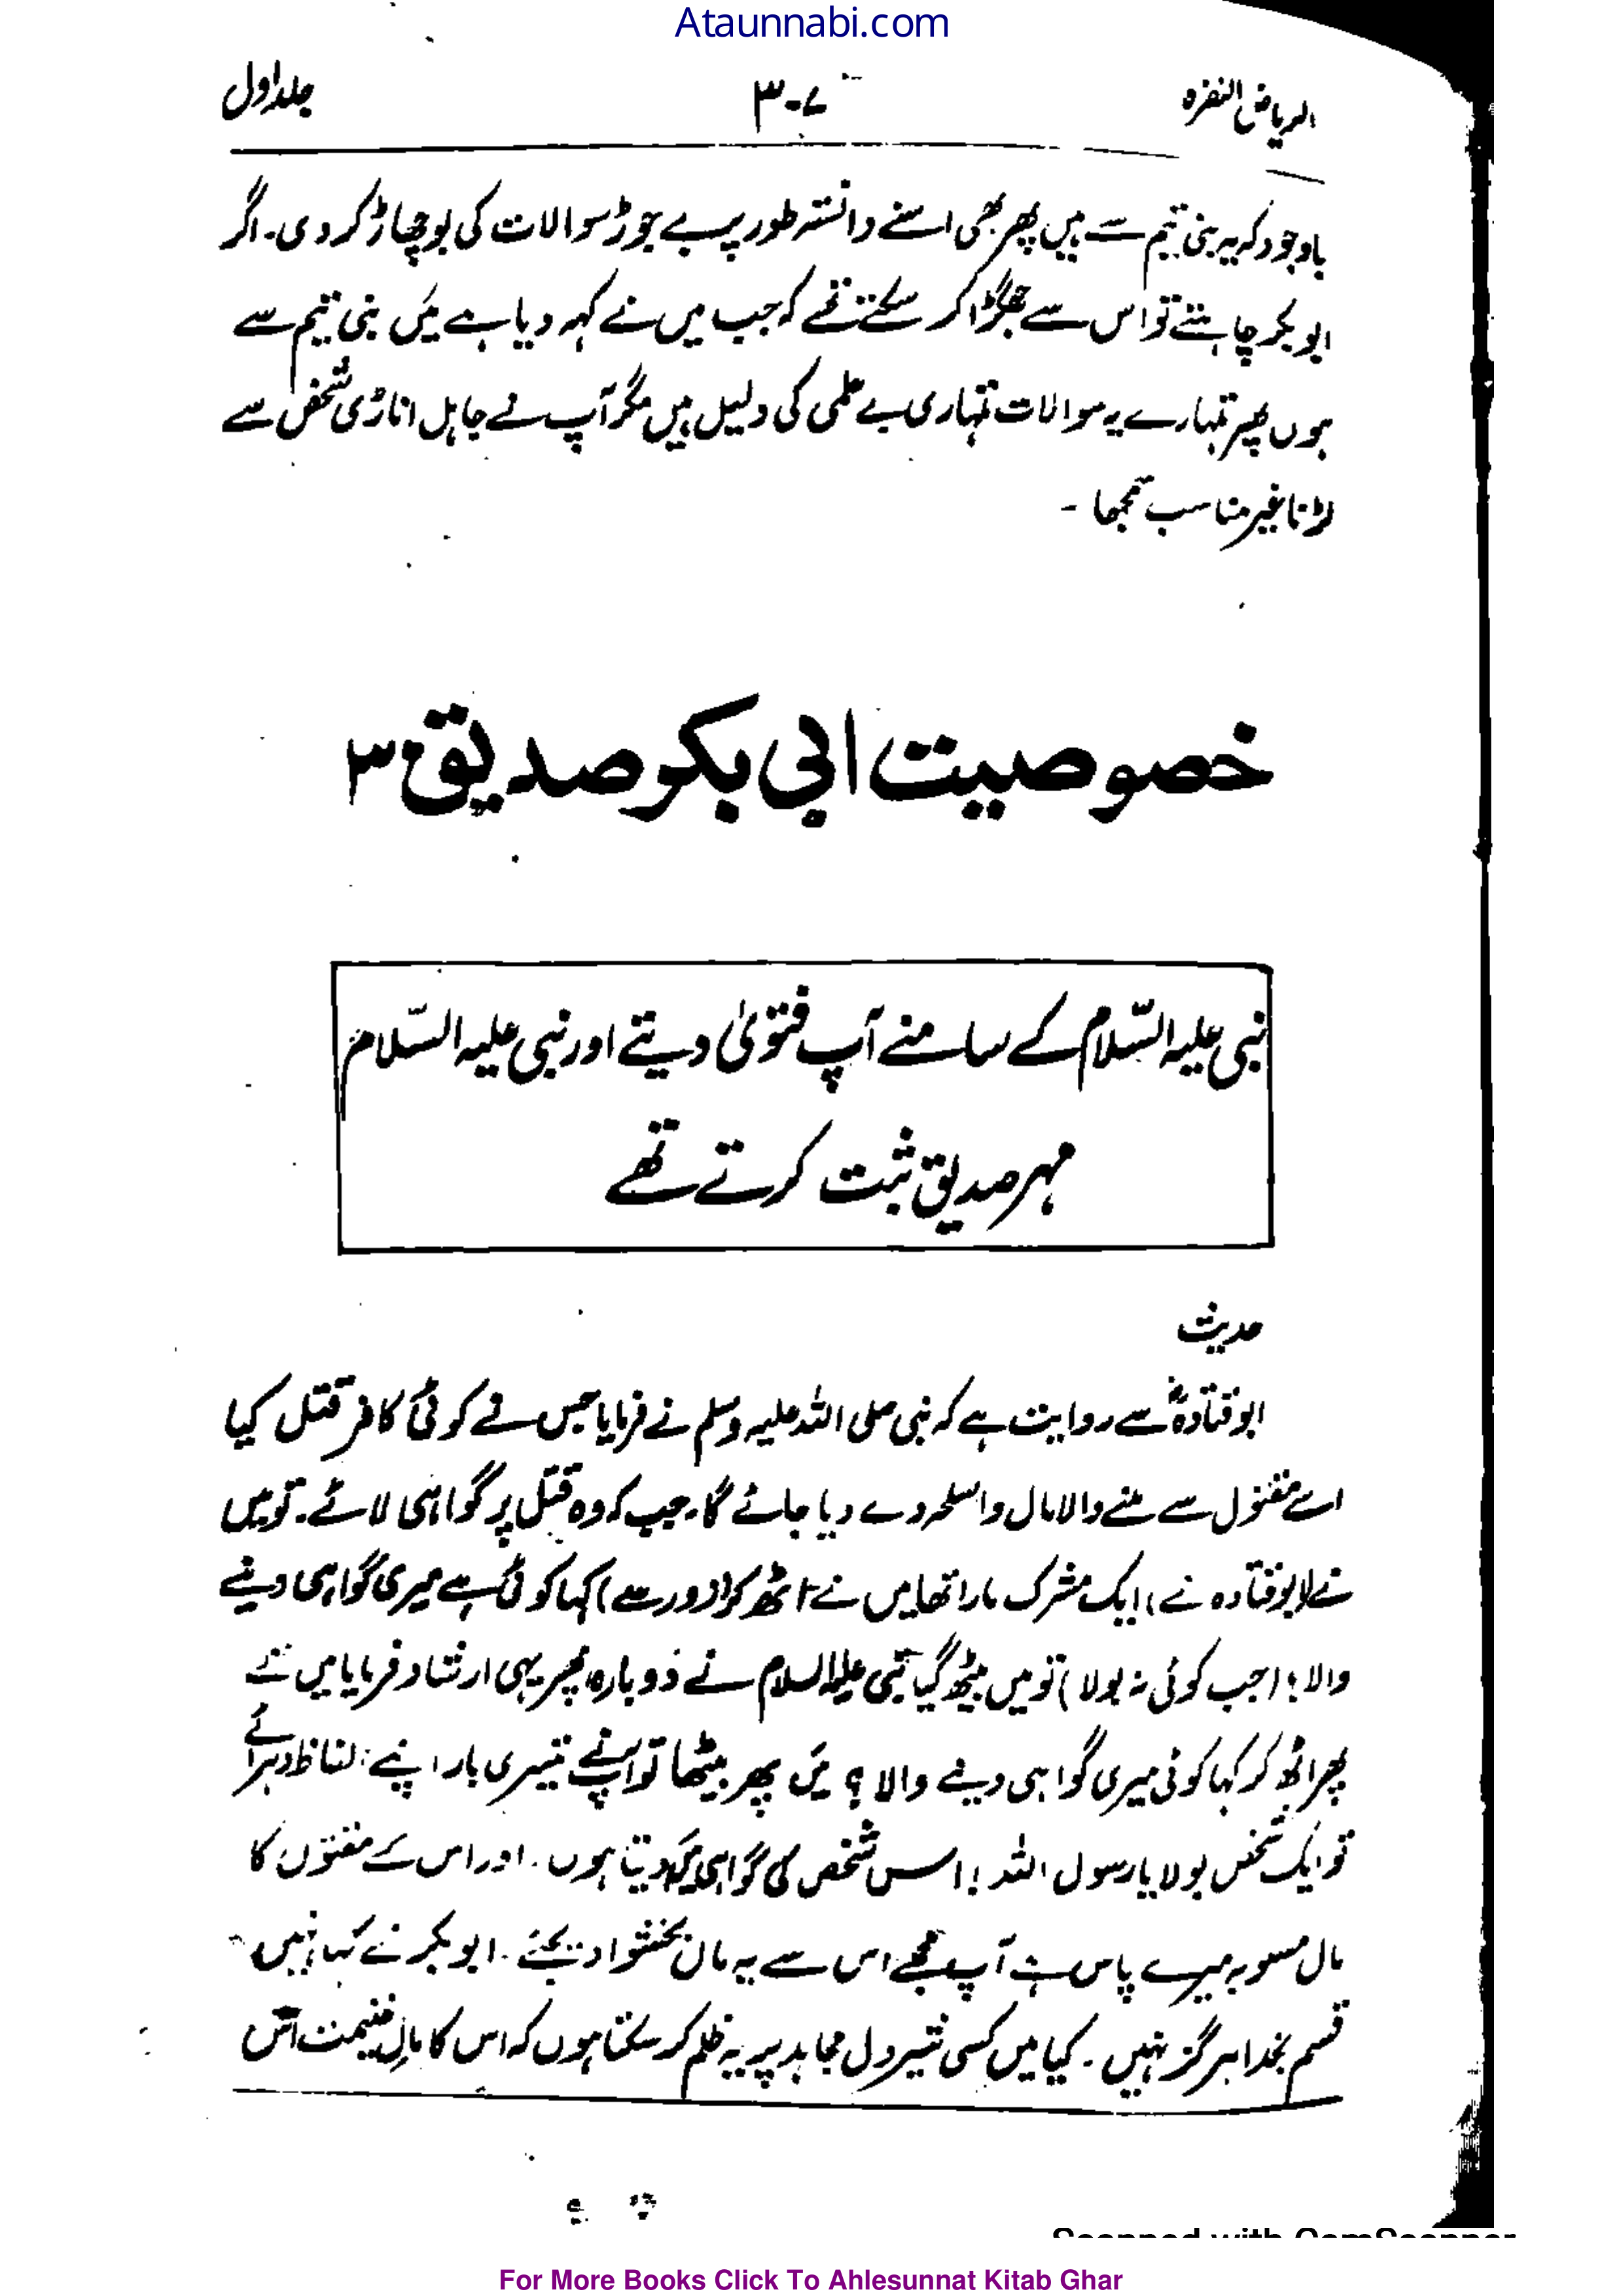 Ataunnabi.com
الریاض النضرہ ۳۰۷ جلد اول
باوجود کہ یہ بنی تیم سے ہیں پھر بھی اسنے دانستہ طور پر بے جوڑ سوالات کی بوچھاڑ کر دی۔ اگر
ابو بکر چاہتے تو اس سے جھگڑا کر سکتے تھے کہ جب میں نے کہہ دیا ہے میں بنی تیم سے
ہوں پھر تمہارے یہ سوالات تمہاری بے علمی کی دلیل ہیں مگر آپ نے جاہل اناڑی شخص سے
لڑنا غیر مناسب سمجھا ۔
خصوصیت ابی بکر صدیق ۳
نبی علیہ السّلام کے سامنے آپ فتویٰ دیتے اور نبی علیہ السّلام
مہر صدیق ثبت کرتے تھے
حدیث
ابو قتادہؓ سے روایت ہے کہ نبی صلی اللہ علیہ وسلم نے فرمایا جس نے کوئی کافر قتل کیا
اسے مقتول سے ملنے والا مال و اسلحہ دے دیا جائے گا۔ جب کہ وہ قتل پر گواہی لائے۔ تو میں
نے (ابو قتادہ نے) ایک مشرک مارا تھا میں نے اٹھ کر (زور سے) کہا کوئی ہے میری گواہی دینے
والا؟ (جب کوئی نہ بولا) تو میں بیٹھ گیا نبی علیہ السلام نے دوبارہ پھر یہی ارشاد فرمایا میں نے
پھر اٹھ کر کہا کوئی میری گواہی دینے والا ؟ میں پھر بیٹھا تو آپنے تیسری بار اپنے الفاظ دہرائے
تو ایک شخص بولا یا رسول اللہ ! اس شخص کی گواہی میں دیتا ہوں۔ اور اس کے مقتول کا
مال مسلوبہ میرے پاس ہے آپ مجھے اس سے یہ مال بخشوا دیجئے۔ ابو بکر نے کہا نہیں
قسم بخدا ہر گز نہیں ۔ کیا میں کسی شیر دل مجاہد پر یہ ظلم کر سکتا ہوں کہ اس کا مالِ غنیمت اس
Scanned with CamScanner
For More Books Click To Ahlesunnat Kitab Ghar